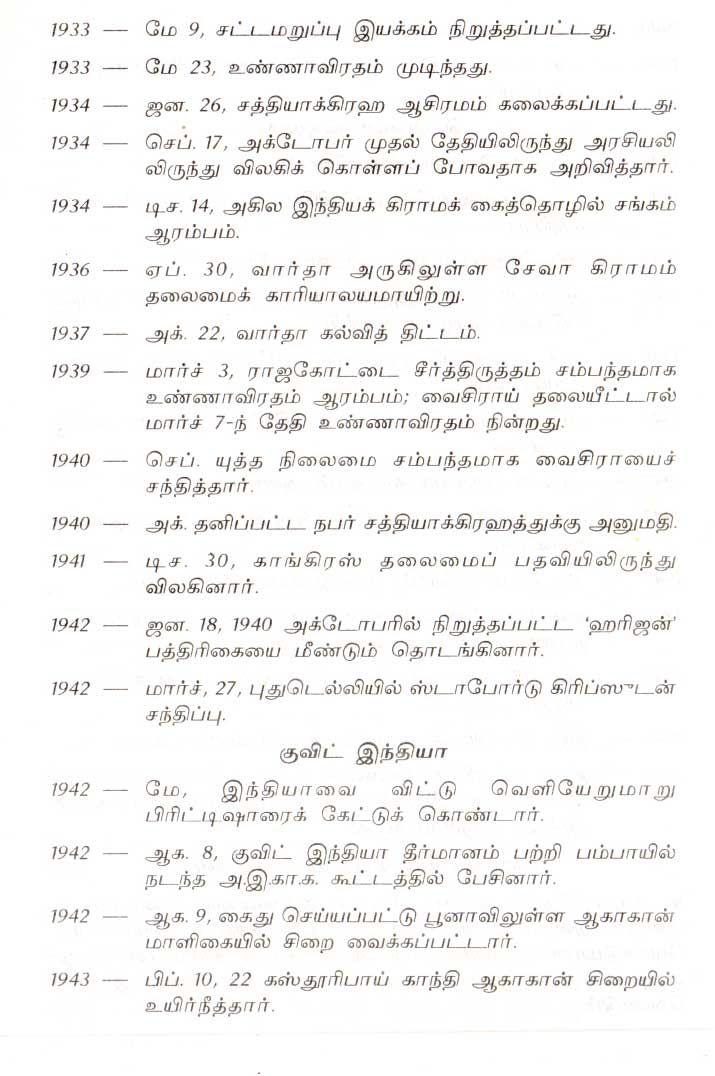 1933 — மே 9, சட்டமறுப்பு இயக்கம் நிறுத்தப்பட்டது.
1933 — மே 23, உண்ணாவிரதம் முடிந்தது.
1934 — ஜன. 26, சத்தியாக்கிரஹ ஆசிரமம் கலைக்கப்பட்டது.
1934 — செப். 17, அக்டோபர் முதல் தேதியிலிருந்து அரசியலி
லிருந்து விலகிக் கொள்ளப் போவதாக அறிவித்தார்.
1934 — டிச. 14, அகில இந்தியக் கிராமக் கைத்தொழில் சங்கம்
ஆரம்பம்.
1936 — ஏப். 30, வார்தா அருகிலுள்ள சேவா கிராமம்
தலைமைக் காரியாலயமாயிற்று.
1937 — அக். 22, வார்தா கல்வித் திட்டம்.
1939 — மார்ச் 3, ராஜகோட்டை சீர்த்திருத்தம் சம்பந்தமாக
உண்ணாவிரதம் ஆரம்பம்; வைசிராய் தலையீட்டால்
மார்ச் 7-ந் தேதி உண்ணாவிரதம் நின்றது.
1940 — செப். யுத்த நிலைமை சம்பந்தமாக வைசிராயைச்
சந்தித்தார்.
1940 — அக். தனிப்பட்ட நபர் சத்தியாக்கிரஹத்துக்கு அனுமதி.
1941 — டிச. 30, காங்கிரஸ் தலைமைப் பதவியிலிருந்து
விலகினார்.
1942 — ஜன. 18, 1940 அக்டோபரில் நிறுத்தப்பட்ட ‘ஹரிஜன்’
பத்திரிகையை மீண்டும் தொடங்கினார்.
1942 — மார்ச், 27, புதுடெல்லியில் ஸ்டாபோர்டு கிரிப்ஸுடன்
சந்திப்பு.
குவிட் இந்தியா
1942 — மே, இந்தியாவை விட்டு வெளியேறுமாறு
பிரிட்டிஷாரைக் கேட்டுக் கொண்டார்.
1942 — ஆக. 8, குவிட் இந்தியா தீர்மானம் பற்றி பம்பாயில்
நடந்த அ.இ.கா.க. கூட்டத்தில் பேசினார்.
1942 — ஆக. 9, கைது செய்யப்பட்டு பூனாவிலுள்ள ஆகாகான்
மாளிகையில் சிறை வைக்கப்பட்டார்.
1943 — பிப். 10, 22 கஸ்தூரிபாய் காந்தி ஆகாகான் சிறையில்
உயிர்நீத்தார்.